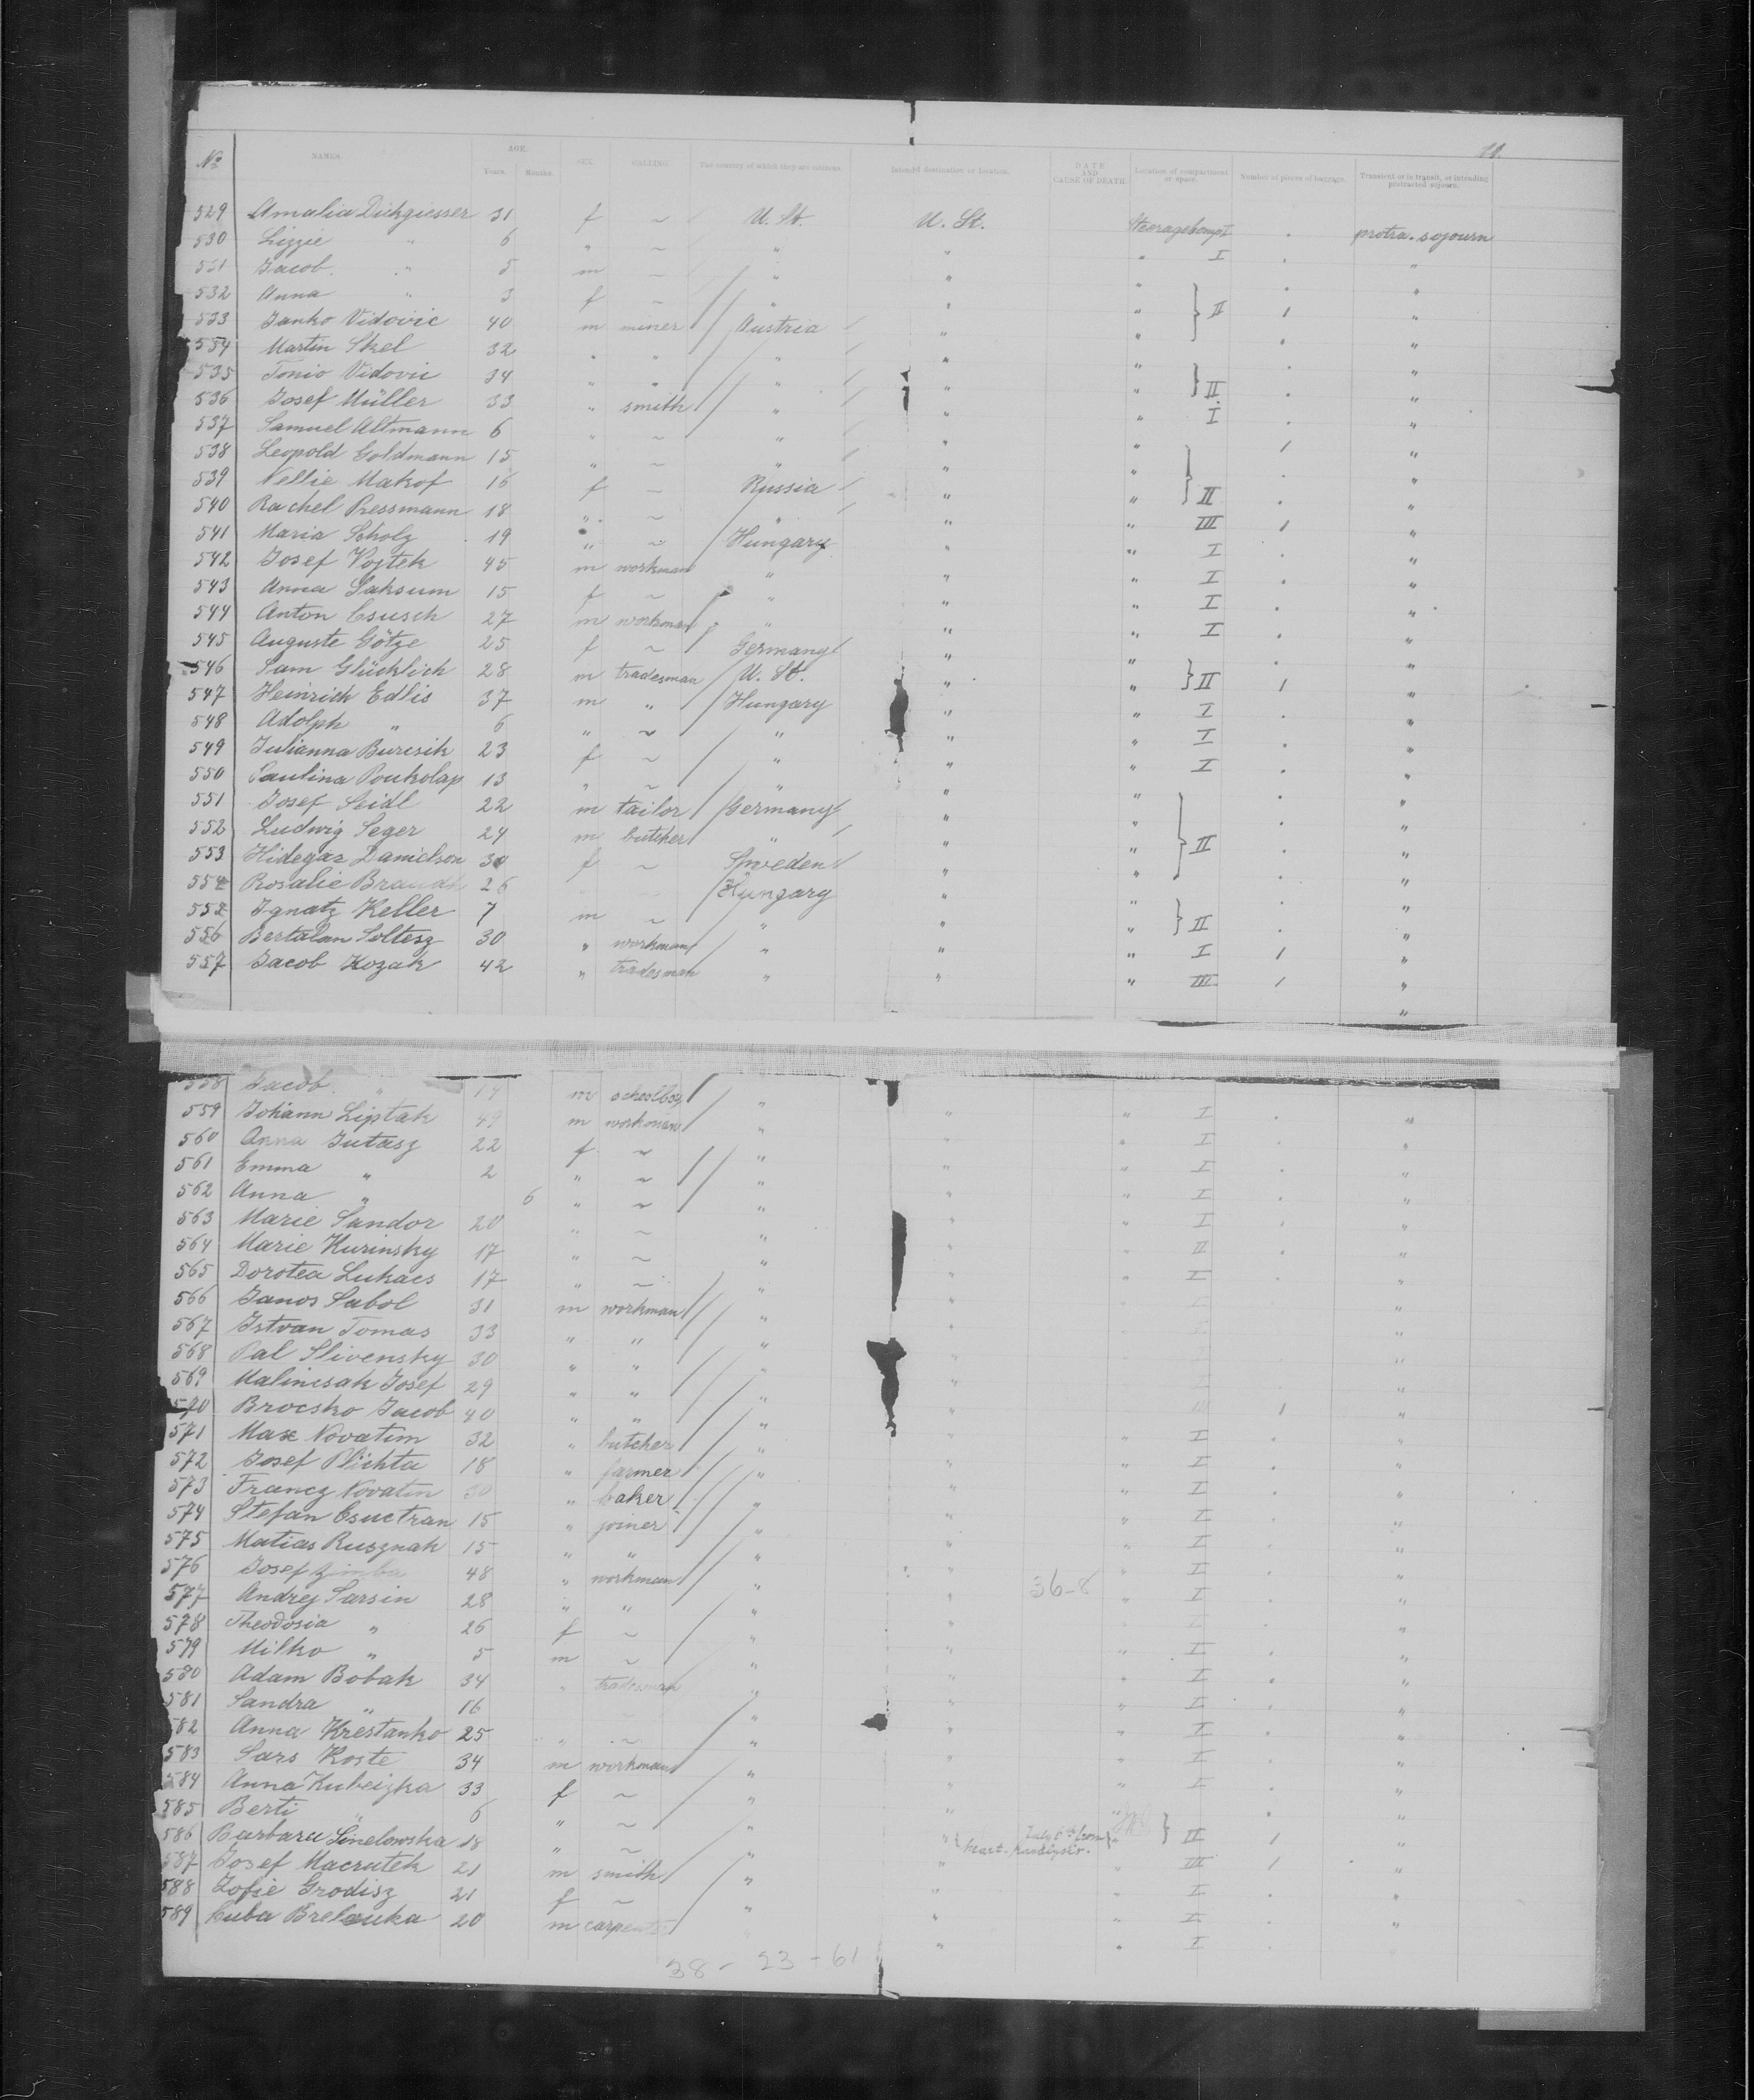 11.
No NAMES. AGE. Years. Months. SEX. CALLING. The country of which they are citizens. Intended destination or location. DATE AND CAUSE OF DEATH. Location of compartment or space. Number of pieces of baggage. Transient or in transit, or intending protracted sojourn.
529 Amalia Dickgiesser 31 f ~ U. St. U. St. Steeragecompt . protra. sojourn
530 Lizzie " 6 " ~ " " " I . "
531 Jacob " 5 m ~ " " " . "
532 Anna " 3 f ~ " " " II 1 "
533 Janko Vidovic 40 m miner Austria " " . "
534 Martin Skel 32 " " " " " . "
535 Tonio Vidovic 34 " " " " " II . "
536 Josef Müller 33 " smith " " " I . "
537 Samuel Altmann 6 " ~ " " " 1 "
538 Leopold Goldmann 15 " ~ " " " . "
539 Nellie Makof 16 f ~ Russia " " II . "
540 Rachel Pressmann 18 " ~ " " " III 1 "
541 Maria Scholz 19 " ~ Hungary " " I . "
542 Josef Vojtek 45 m workman " " " I . "
543 Anna Saksum 15 f ~ " " " I . "
544 Anton Csusch 27 m workman " " " I . "
545 Auguste Götze 25 f ~ Germany " " . "
546 Sam Glücklich 28 m tradesman U. St. " " II 1 "
547 Heinrich Edlis 37 m " Hungary " " I . "
548 Adolph " 6 " ~ " " " I . "
549 Julianna Burcsik 23 f ~ " " " I . "
550 Paulina Poukolap 13 " ~ " " " . "
551 Josef Seidl 22 m tailor Germany " " . "
552 Ludwig Seger 24 m butcher " " " II . "
553 Hidegar Danielson 30 f ~ Sweden " " . "
554 Rosalie 26 Hungary " " . "
552 Ignatz Keller 7 m ~ " " " II . "
556 Bertalan Soltesz 30 " workman " " " I 1 "
557 Jacob Kozak 42 " tradesman " " " III 1 "
"
558 Jacob " 14 m schoolboy "
559 Johann Liptak 49 m workman " " " I . "
560 Anna Jutasz 22 f ~ " " " I . "
561 Emma " 2 " ~ " " " I . "
562 Anna " 6 " ~ " " " I . "
563 Marie Sandor 20 " ~ " " " I . "
564 Marie Kurinsky 17 " ~ " " " II . "
565 Dorotea Lukacs 17 " ~ " " " I . "
566 Janos Sabol 31 m workman " " "
567 Istvan Tomas 33 " " " " "
568 Pal Slivensky 30 " " " " "
569 Malincsak Josef 29 " " " " "
570 Brocsko Jacob 40 " " " " III 1 "
571 Max Novatim 32 " butcher " " " I . "
572 Josef Plichta 18 " farmer " " " I . "
573 Francz Novatin 30 " baker " " " I . "
574 Stefan Csuctran 15 " joiner " " " I . "
575 Matias Rusznak 15 " " " " " I . "
576 Josef 48 " workman " " 36-8 " I . "
577 Andrej Sarsin 28 " " " " " I . "
578 Theodosia " 26 f ~ " " "
579 Milko " 5 m ~ " " " I . "
580 Adam Bobak 34 " tradesman " " " I . "
581 Sandra " 16 " " " I . "
582 Anna Krestanko 25 " ~ " " " I . "
583 Sars Koste 34 m workman " " " I . "
584 Anna Kubeizka 33 f ~ " " " I . "
585 Berti " 6 " ~ " " " . "
586 Barbara Sinelowska 18 " ~ " " July 6th from heart-paralysis. " II 1 "
587 Josef Macrutek 21 m smith " " " III 1 "
588 Zofie Grodisz 21 f ~ " " " I . "
589 Cuba Brelauka 20 m " " I . "
" " I .
38 - 23 - 61